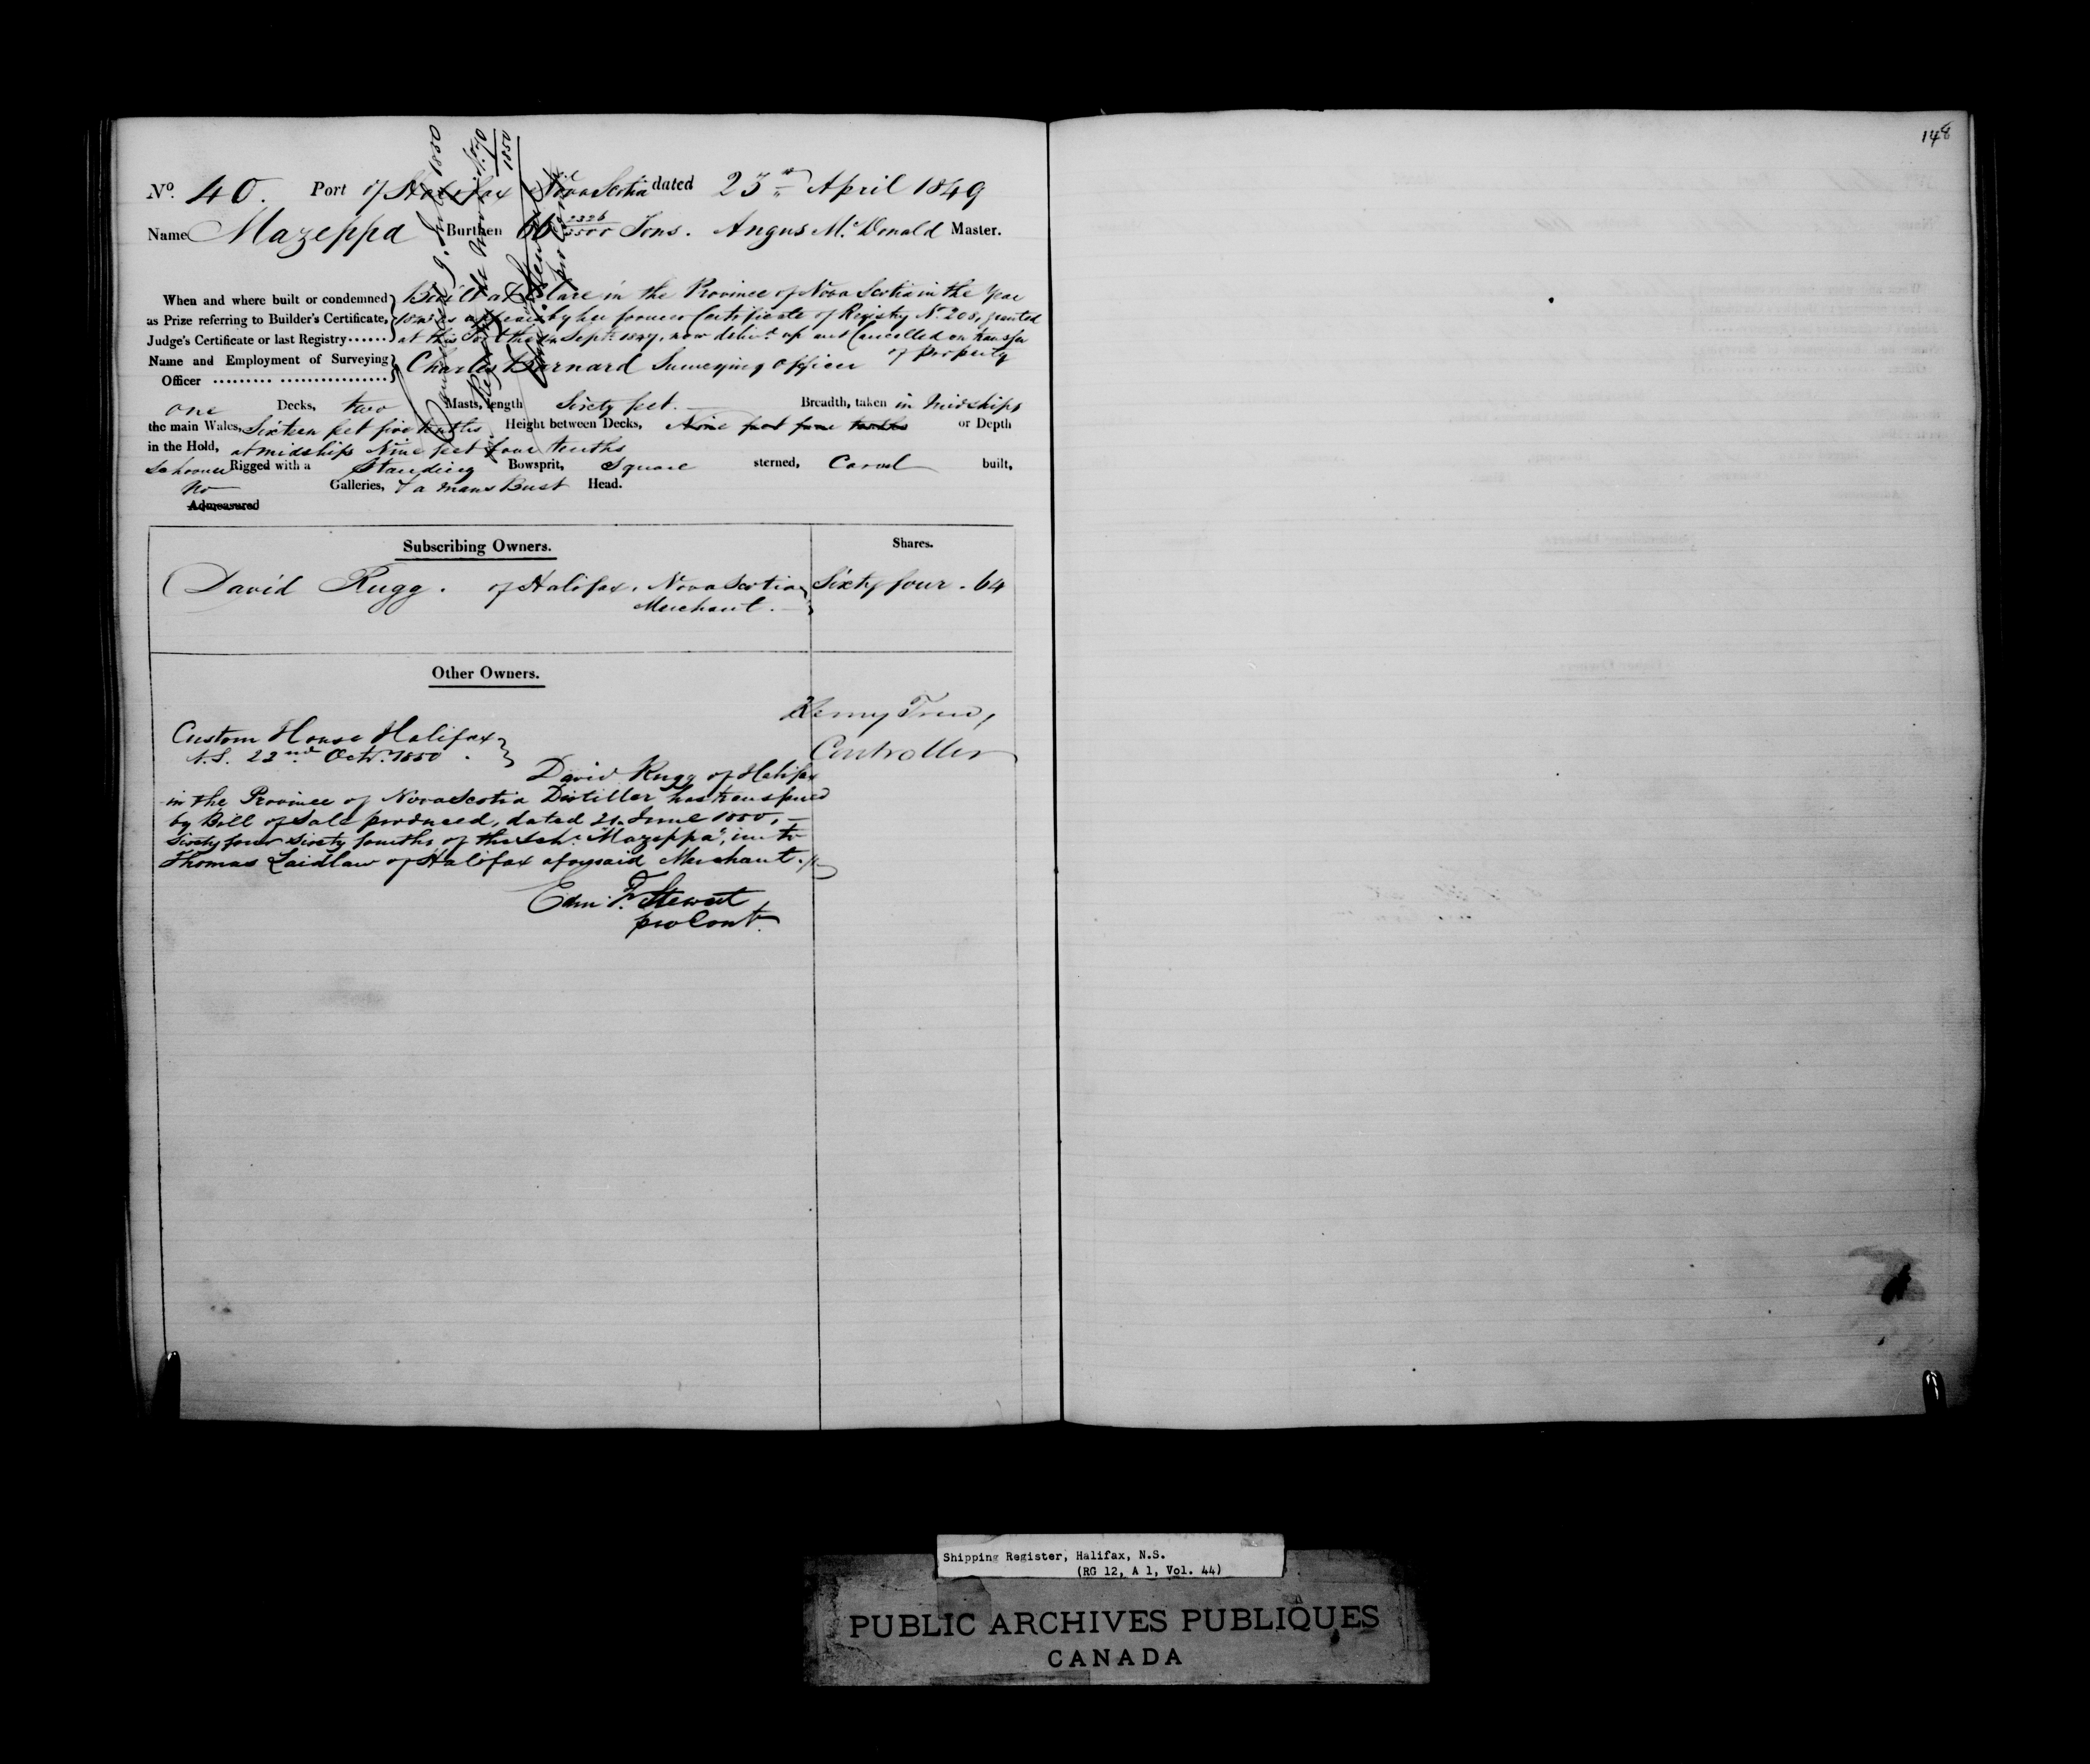 148
No. 40. Port of Halifax Nova Scotia dated 23rd April 1849
Name Mazeppa Burthen 66 2326/3500 Tons. Angus McDonald Master.
When and where built or condemned Built at Clare in the Province of Nova Scotia in the Year
as Prize referring to Builder's Certificate, as appears by her former Certificate of Registry No 208, granted
Judge's Certificate or last Registry...... at this Port the Septr 1847, now delivd up and Cancelled on transfer
of property
Name and Employment of Surveying Charles Barnard Surveying Officer
Officer
one Decks, two Masts, length Sixty feet. Breadth, taken in Midships
the main Wales, Sixteen feet five tenths Height between Decks, or Depth
in the Hold, at midships Nine feet four tenths
Schooner Rigged with a Standing Bowsprit, Square sterned, Carvel built,
No Galleries, & a mans Bust Head.
Admeasured
Subscribing Owners. Shares.
David Rugg. of Halifax, Nova Scotia Sixty four . 64
Merchant.
Other Owners.
Henry Trew,
Controller
Custom House Halifax
N.S. 22nd Octr. 1850.
David Rugg of Halifax
in the Province of Nova Scotia Distiller has transferred
by Bill of Sale produced, dated 21 June 1850,
Sixty four sixty fourths of the Schr "Mazeppa", unto
Thomas Laidlaw of Halifax aforesaid Merchant.
Edm. F. Stewart
pro Cont.
Shipping Register, Halifax, N.S.
(RG 12, A 1, Vol. 44)
PUBLIC ARCHIVES PUBLIQUES
CANADA